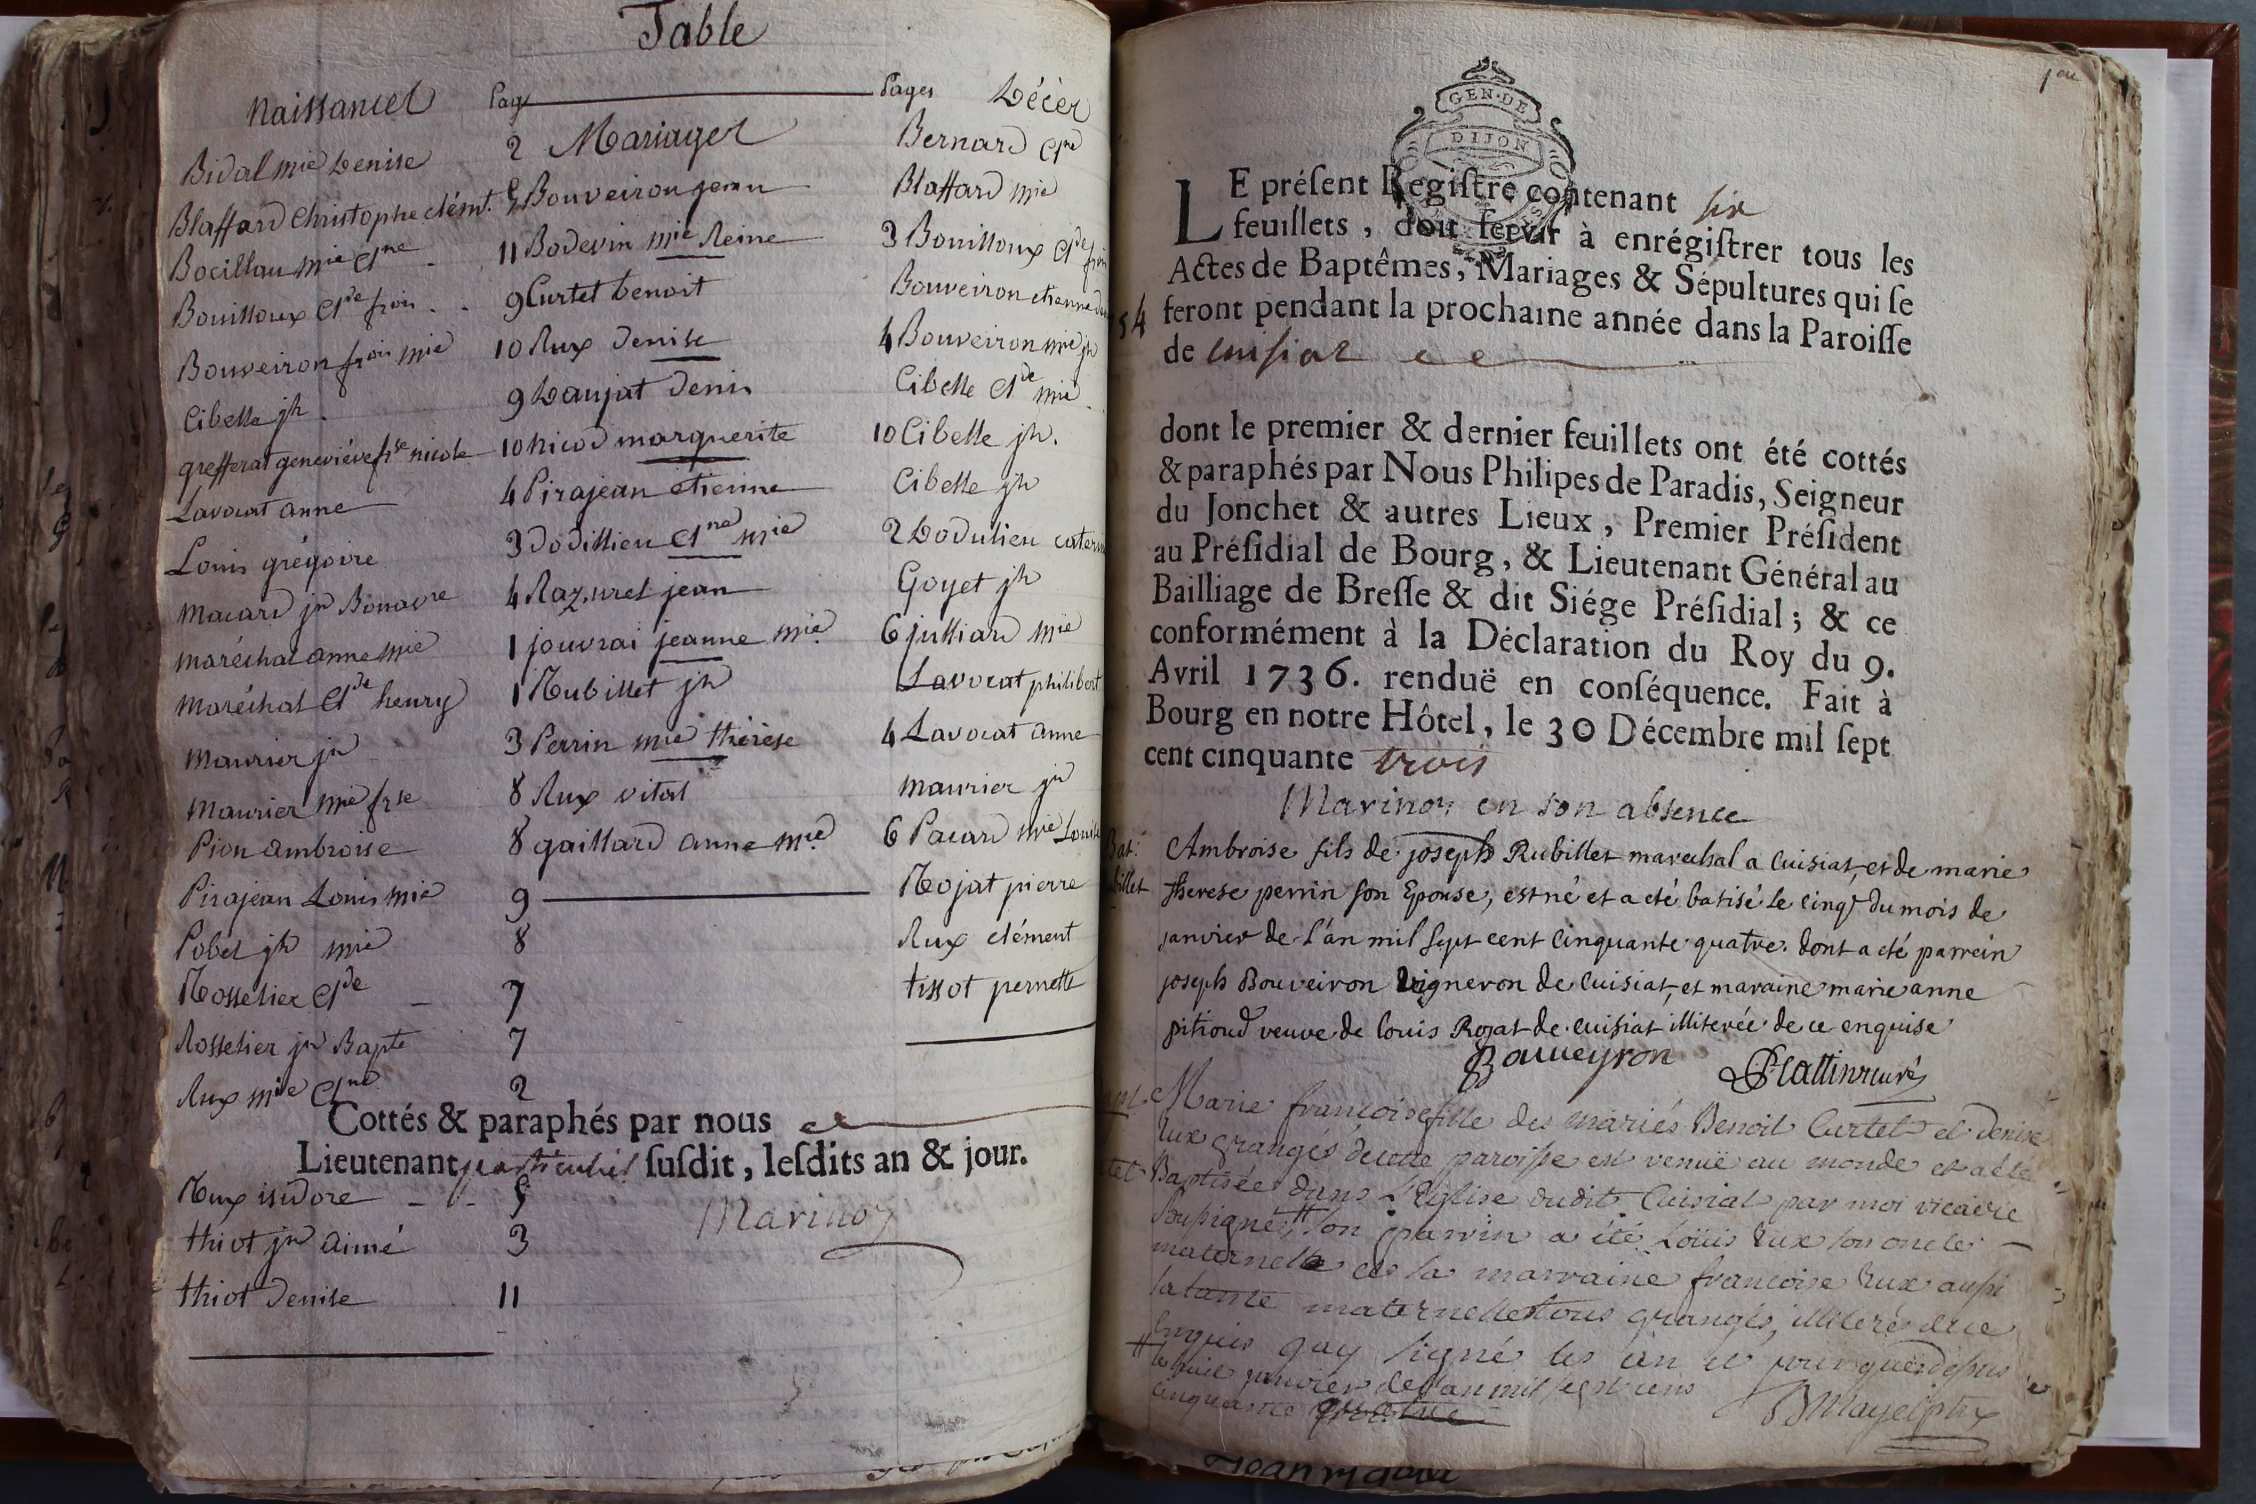 Table
Naissances Page Pages Décès
Mariages
Bidal mie Denise 2
Bernard Cne
Blaffard Christophe clémt. 5 Bouveiron jean
Blaffard mie
Bocillau mie Cne 11 Bodevin mie Reine 3 Bouilloux Cde frois
Bouilloux Cde frois 9 Curtet benoit
Bouveiron etienne
Bouveiron frois mie 10 Rux Denise 4 Bouveiron mie jh
Cibelle jh 9 Daujat Denis
Cibelle Cde mie
grefferat geneviéve frse nicole 10 Nicod marguerite 10 Cibelle jh.
Lavocat anne 4 Pirajean etienne
Cibelle jh
Louis grégoire 3 Dodillieu Cne mie 2 Dodulieu
Macard jn Bonavre 4 Razurel jean
Goyet jh
Maréchal anne mie 1 jouvrai jeanne mie 6 julliard mie
Maréchal Cde henry 1 Rubillet jh
Lavocat philibert
Maurier jn 3 Perrin mie thérèse 4 Lavocat anne
Maurier mie frse 8 Rux vital
maurier jn
Pion ambroise 8 gaillard anne mie 6 Pacard mie Louise
Pirajean Louis mie 9
Rojat pierre
Pobel jh mie 8
Rux clément
Rosselier Cde 7
tissot pernette
Rosselier jn Bapte 7
Rux mie Cne 2
Cottés & paraphés par nous
Lieutenant particulier susdit, lesdits an & jour.
Rux isidore 5
Marinon
thiot jn aimé 3
thiot Denise 11
1er
GEN. DE
DIJON
LE préſent Regiſtre contenant six
feuillets, doit ſervir à enrégiſtrer tous les
Actes de Baptêmes, Mariages & Sépultures qui ſe
feront pendant la prochaine année dans la Paroiſſe
54
de cuisiat
dont le premier & dernier feuillets ont été cottés
& paraphés par Nous Philipes de Paradis, Seigneur
du Jonchet & autres Lieux, Premier Préſident
au Préſidial de Bourg, & Lieutenant Général au
Bailliage de Breſſe & dit Siége Préſidial; & ce
conformément à la Déclaration du Roy du 9.
Avril 1736. renduë en conſéquence. Fait à
Bourg en notre Hôtel, le 30 Décembre mil ſept
cent cinquante trois
Marinon en son absence
Bat:
Ambroise fils de joseph Rubillet marechal a Cuisiat, et de marie
billet
therese perrin son Epouse, est né et a eté batisé le cinq du mois de
janvier de l'an mil sept cent cinquante quatre. dont a eté parrein
joseph Bouveiron Vigneron de Cuisiat, et maraine marie anne
pitioud veuve de louis Rojat de cuisiat illiterée de ce enquise
Bouveyron
Plattin curé
Marie françoise fille des mariés Benoit Curtet et denise
tet
Rux grangés de cette paroisse est venuë au monde et a eté
Baptisée dans L'Eglise dudit Cuisiat par moi vicaire
soussigné, # son parrin a été Loüis Rux son oncle
maternelle et la marraine francoise Rux aussi
sa tante maternelle tous grangés, illiterés de ce
enquis qay signé les an et jour que dessus
# le huit janvier de l'an mil sept cens
cinquante quatre